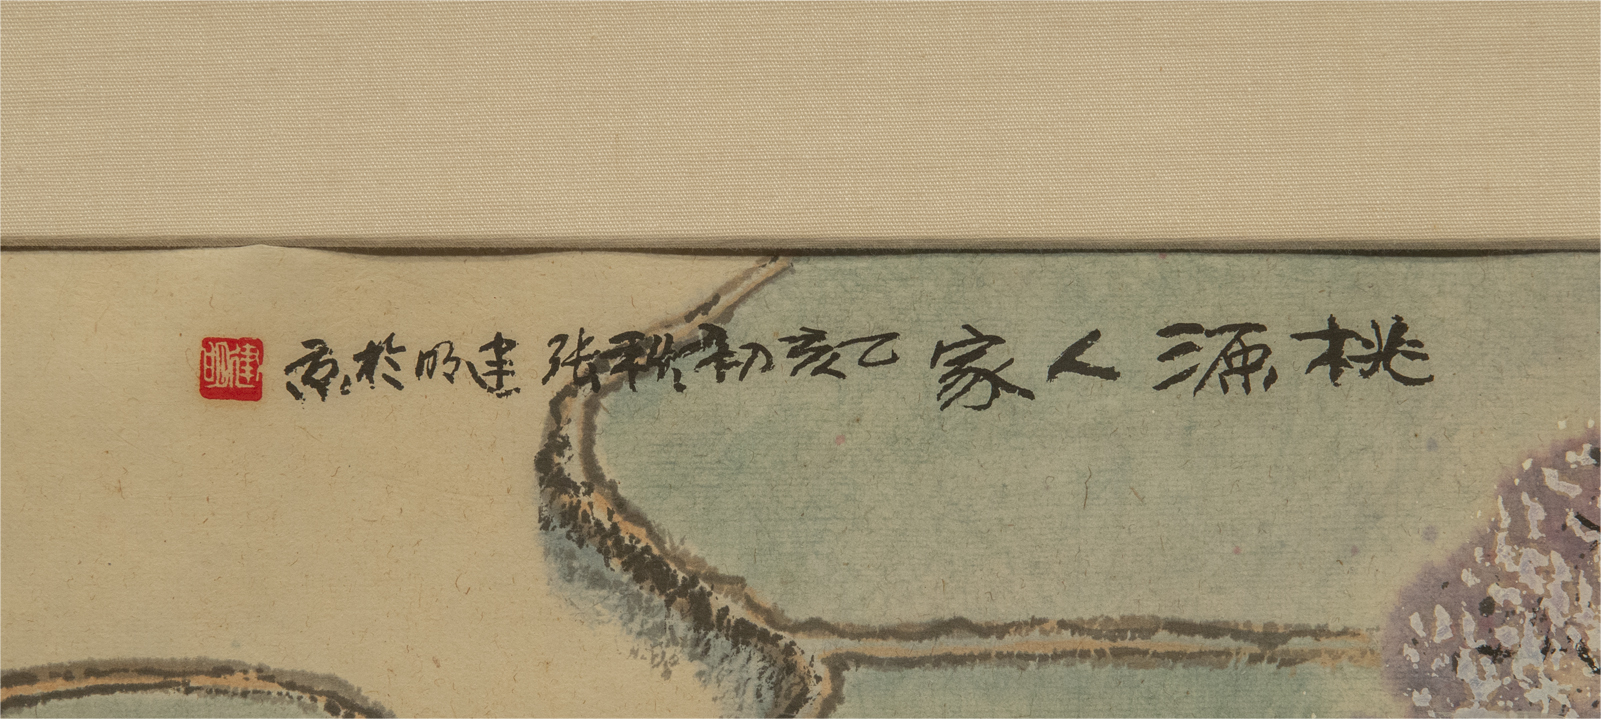 桃源人家乙亥初秋张建明於京
建明